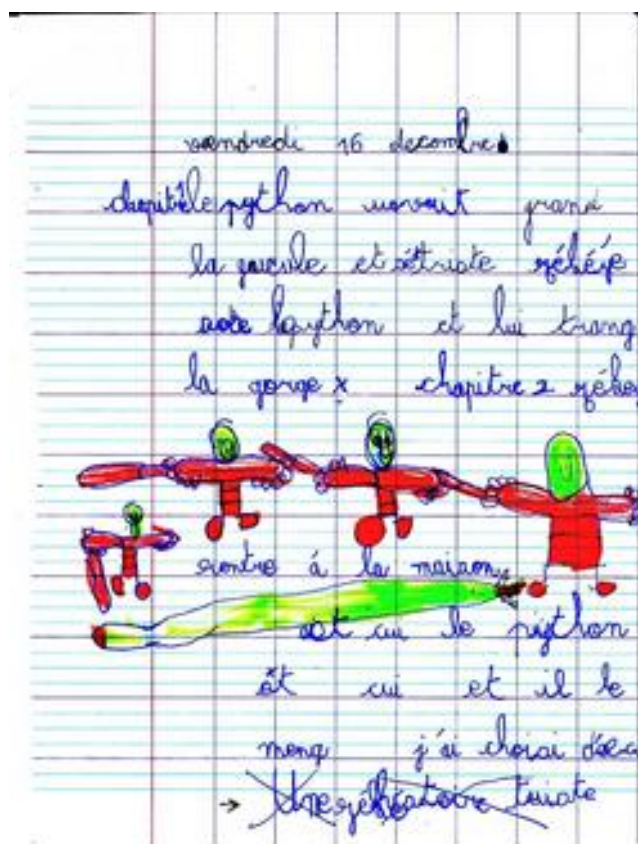 vendredi 16 decembre
chapitre le python uovrit grand
la gueule et sétriate rébéé
sote lepython et lui trang
la gorge x chapitre 2 rébe
rentre à la maison
le python
ât cui et il le
mang j'ai choisi d'éc
→ triate